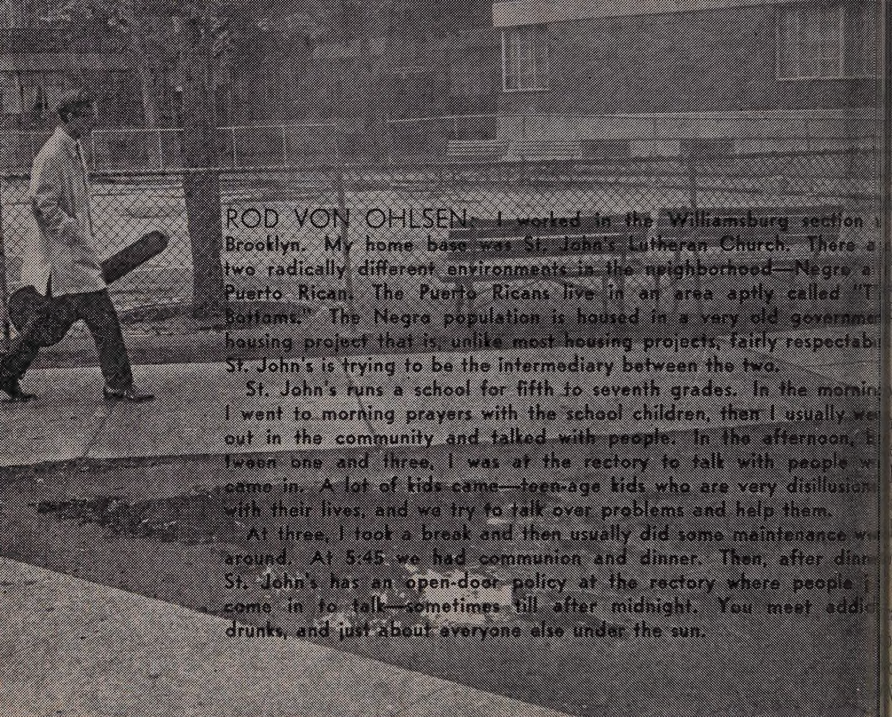 ROD VON OHLSEN: I worked in the Williamsburg section
Brooklyn. My home base was St. John's Lutheran Church. There
two radically different environments in the neighborhood—Negro
Puerto Rican. The Puerto Ricans live in an area aptly called
Bottoms." The Negro population is housed in a very old
housing project that is, unlike most housing projects, fairly
St. John's is trying to be the intermediary between the two.
St. John's runs a school for fifth to seventh grades. In the
I went to morning prayers with the school children, then I usually
out in the community and talked with people. In the afternoon,
tween one and three, I was at the rectory to talk with people
came in. A lot of kids came—teen-age kids who are very
with their lives, and we try to talk over problems and help them.
At three, I took a break and then usually did some maintenance
around. At 5:45 we had communion and dinner. Then, after
St. John's has an open-door policy at the rectory where people
come in to talk—sometimes till after midnight. You meet
drunks, and just about everyone else under the sun.